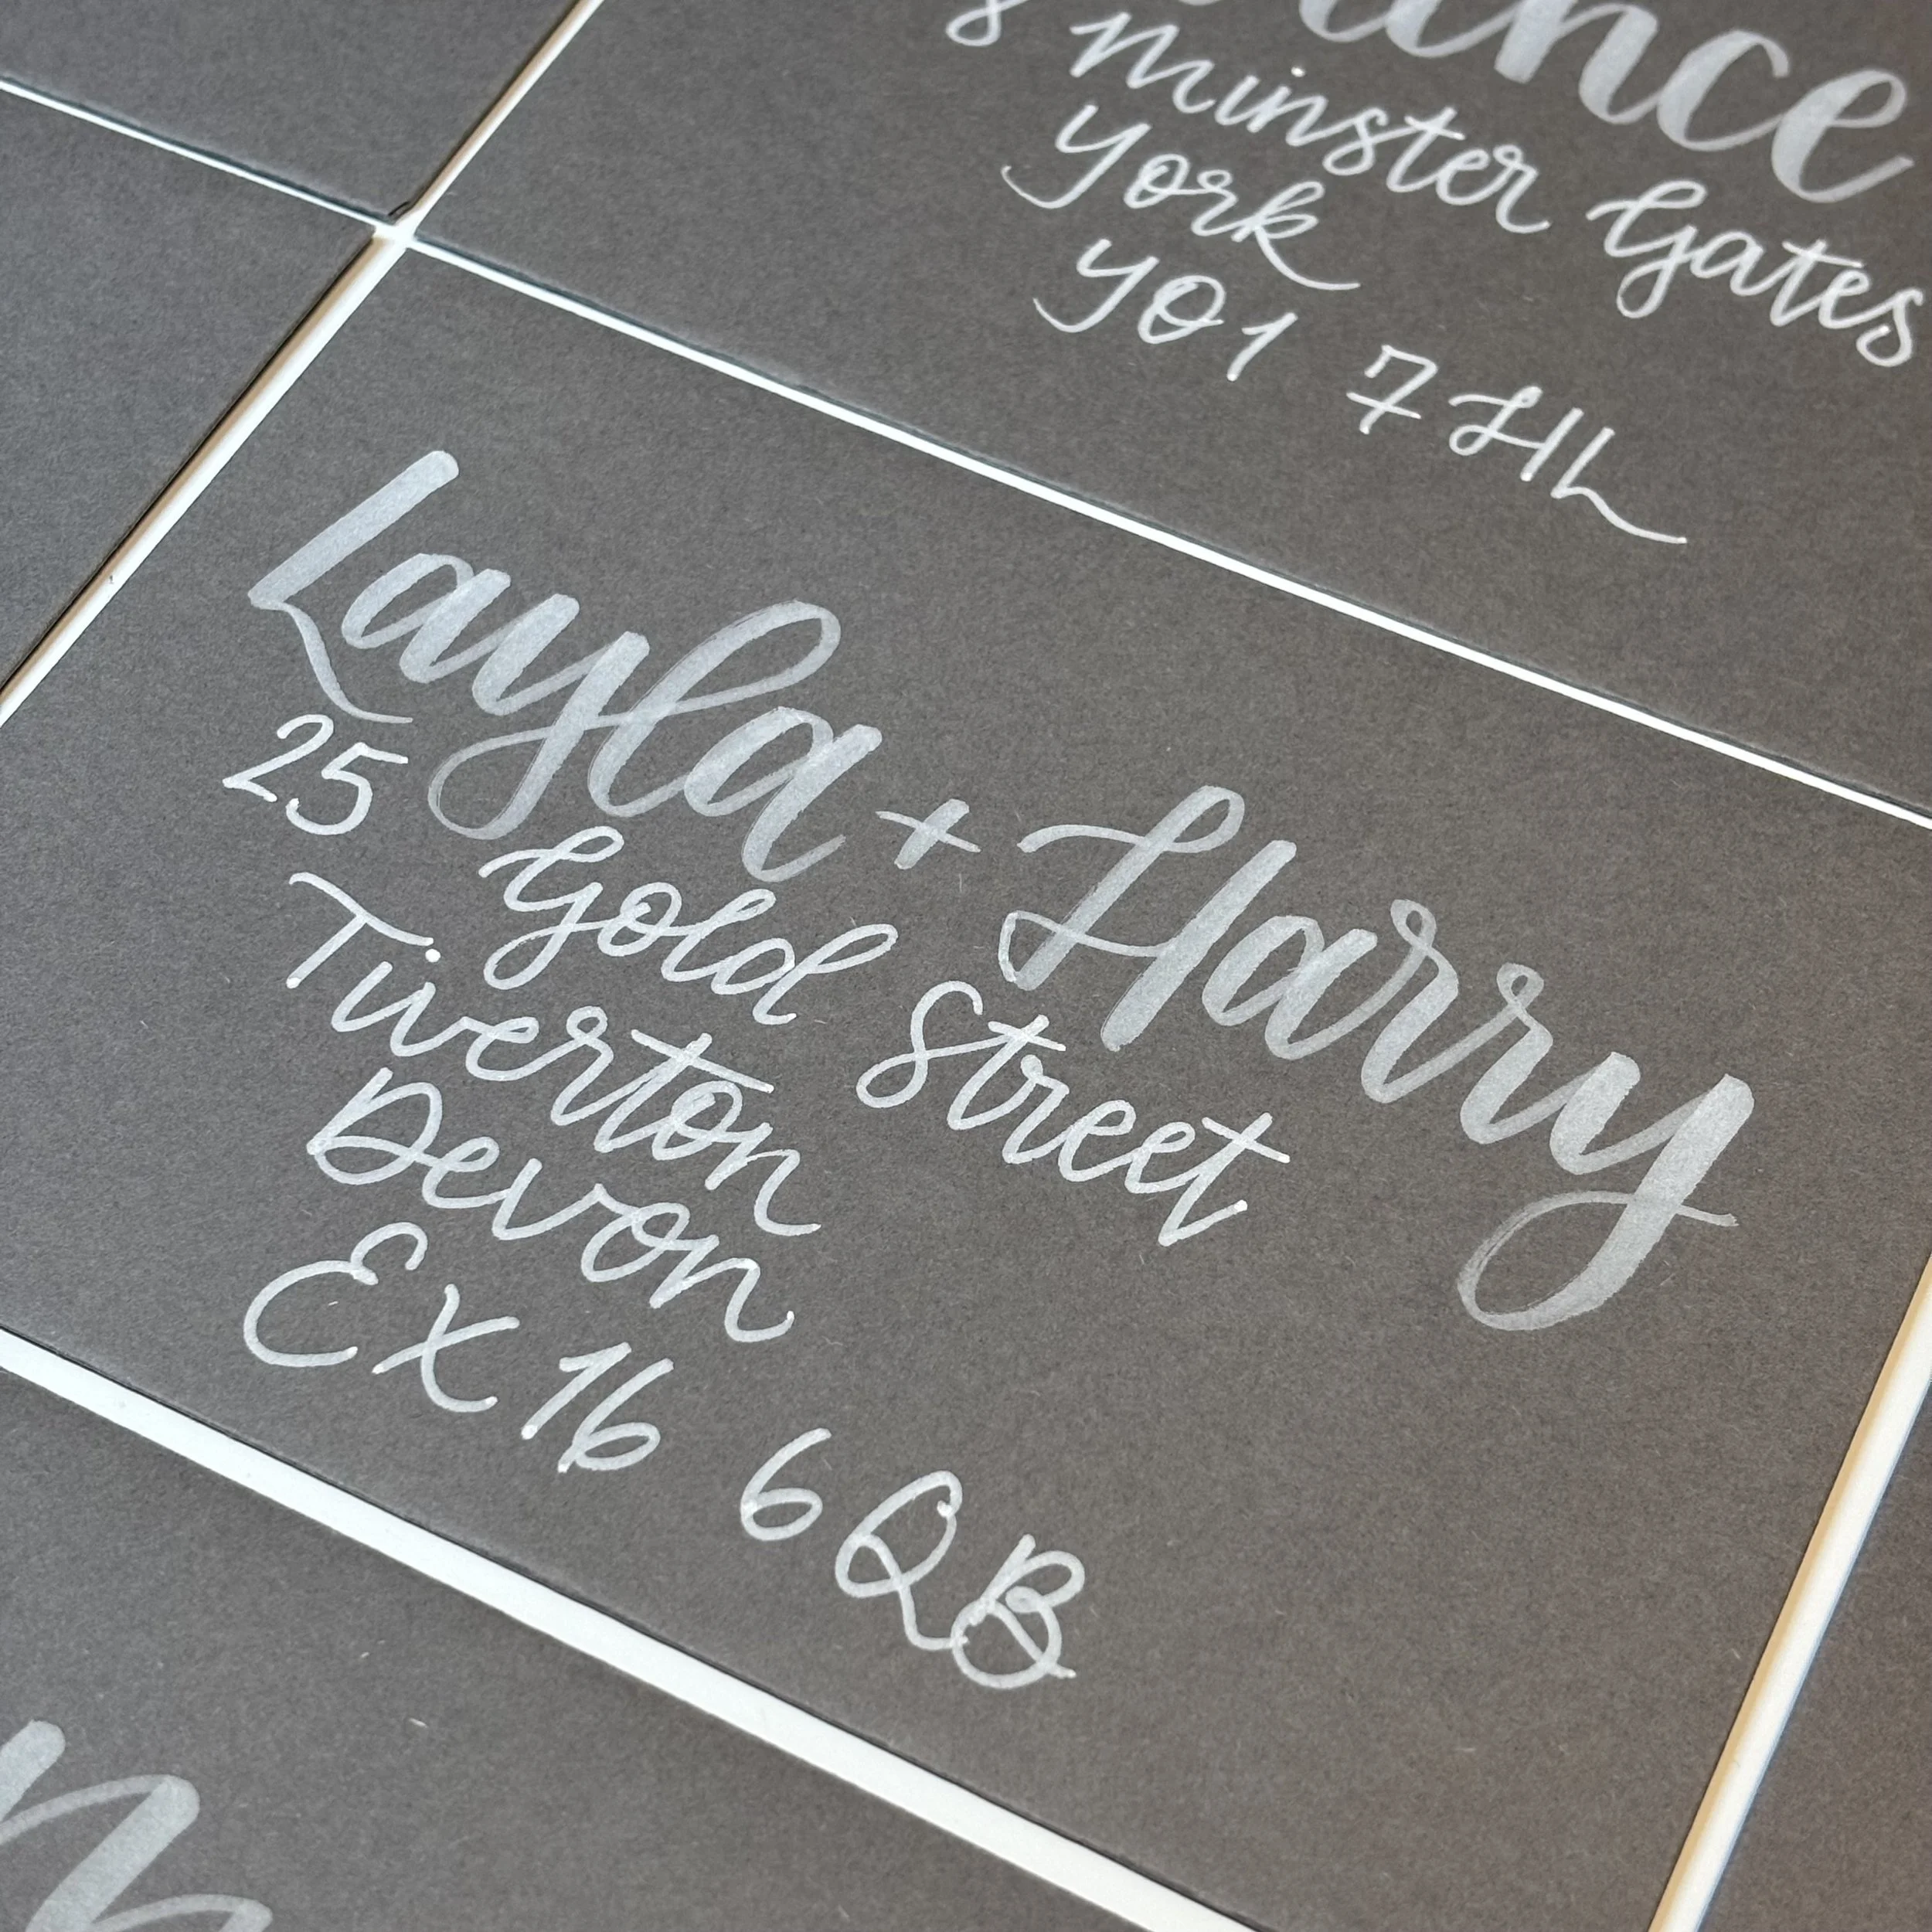 8 Minster Gates
York
YO1 7HL
Layla + Harry
25 Gold Street
Tiverton
Devon
EX16 6QB